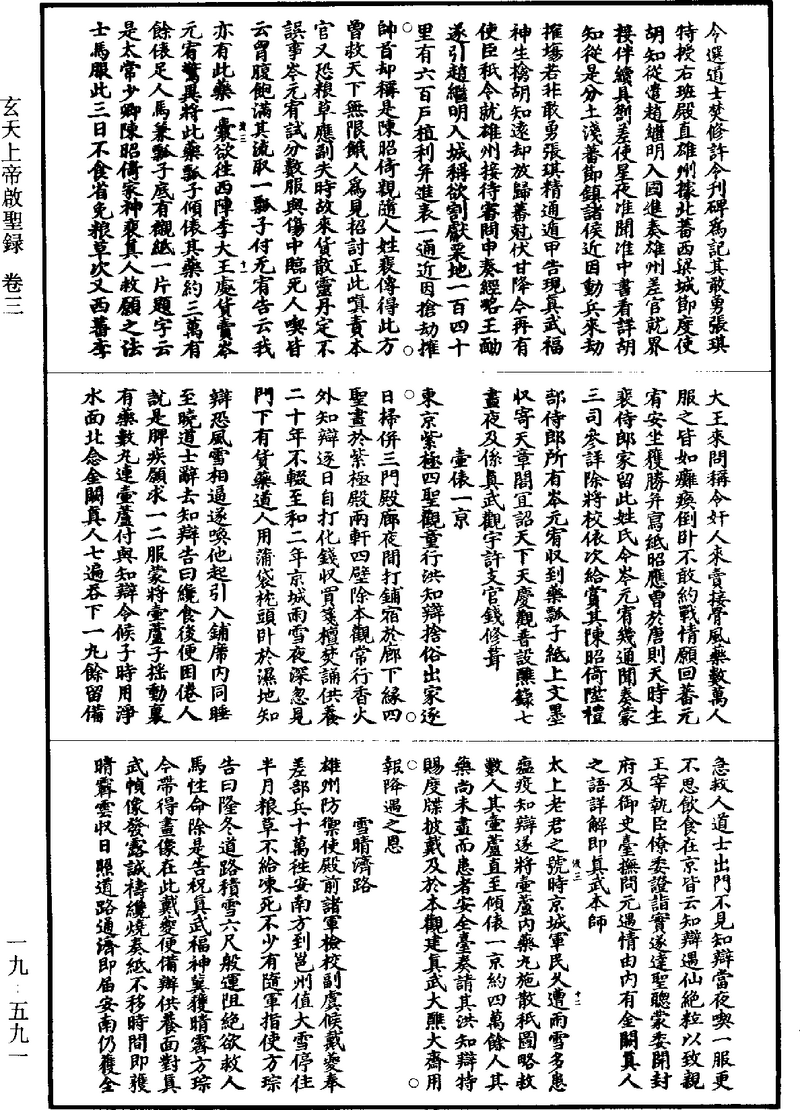 今選道士焚修許令刋碑爲記其敢勇張琪
特授右班殿直雄州據北蕃西梁城節度使
胡知從遣趙繼明入國進奏雄州差官就界
接伴續具劄差使星夜准聞准中書看詳胡
知從是分土淺蕃節鎮諸侯近因動兵來劫
搉塲若非敢勇張琪精通遁甲告現真武福
神生擒胡知遠却放歸蕃冠伏甘降今再有
使臣秖令就雄州接待審問申奏經略王酌
遂引趙繼明入城稱欲割獻粟地一百四十
里有六百戸植利并進表一通近因搶劫搉
帥首却稱是陳昭倚觀隨人姓裴傳得此方
曾救天下無限餓人爲見招討正此嗔責本
官又恐粮草應副失時故來貨散靈丹定不
誤事岑元宥試分數服與傷中臨死人喫皆
云胃腹飽滿其流取一瓢子付元宥告云我
亦有此藥一囊欲往西陣李大王處貨賣岑
元宥驚異將此藥瓢子傾俵其藥約三萬有
餘俵足人馬兼瓢子底有襯紙一片題字云
是太常少卿陳昭倚家神裴真人救願之法
士馬服此三日不食省免粮草次又西蕃李
大王來問稱令奸人來賣接骨風藥數萬人
服之皆如癱瘓倒卧不敢約戰情願回蕃元
宥安坐獲勝并寫紙昭應曾於唐則天時生
裴侍郎家留此姓氏令岑元宥幾通聞奏蒙
三司參詳除將校依次給賞其陳昭倚陞禮
部侍郎所有岑元宥收到藥瓢子紙上文墨
収寄天章閣宜詔天下天慶觀普設醮籙七
晝夜及係真武觀宇許支官錢修葺
壼俵一京
東京紫極四聖觀童行洪知辯捨俗出家逐
日掃併三門殿廊夜間打鋪宿於廊下緣四
聖畫於紫極殿兩軒四壁除本觀常行香火
外知辯逐日自打化錢収買箋檀焚誦供養
二十年不輟至和二年京城雨雪夜深忽見
門下有貨藥道人用蒲袋枕頭卧於濕地知
辯恐風雪相逼遂喚他起引入鋪席内同睡
至曉道士辭去知辯告曰纔食後便困倦人
說是脾疾願求一二服蒙將壷蘆子摇動裏
有藥數丸連壷蘆付與知辯令候子時用淨
水面北念金闕真人七遍吞下一丸餘留備
急救人道士出門不見知辯當夜喫一服更
不思飲食在京皆云知辯遇仙絶粒以致親
王宰執臣僚委證詣實遂達聖聰蒙委開封
府及御史臺撫問元遇情由内有金闕真人
之語詳解即真武本師
太上老君之號時京城軍民久遭雨雪多患
瘟疫知辯遂將壷蘆内藥丸施散秖圖略救
數人其壷蘆直至傾俵一京約四萬餘人其
藥尚未盡而患者安全臺奏請其洪知辯特
賜度牒披戴及於本觀建真武大醮大齋用
報降遇之恩
雪晴濟路
雄州防禦使殿前諸軍檢校副虞候戴夔奉
差部兵十萬徃安南方到邕州值大雪停住
半月粮草不給凍死不少有隨軍指使方琮
告曰隆冬道路積雪六尺般運阻絶欲救人
馬性命除是告祝真武福神冀獲晴霽方琮
今帶得畫像在此戴夔便備辦供養面對真
武幀像發露誠禱纔燒奏紙不移時間即獲
晴霽雲収日照道路通濟即届安南仍獲全
玄天上帝啟聖録 卷三
一九·五九一